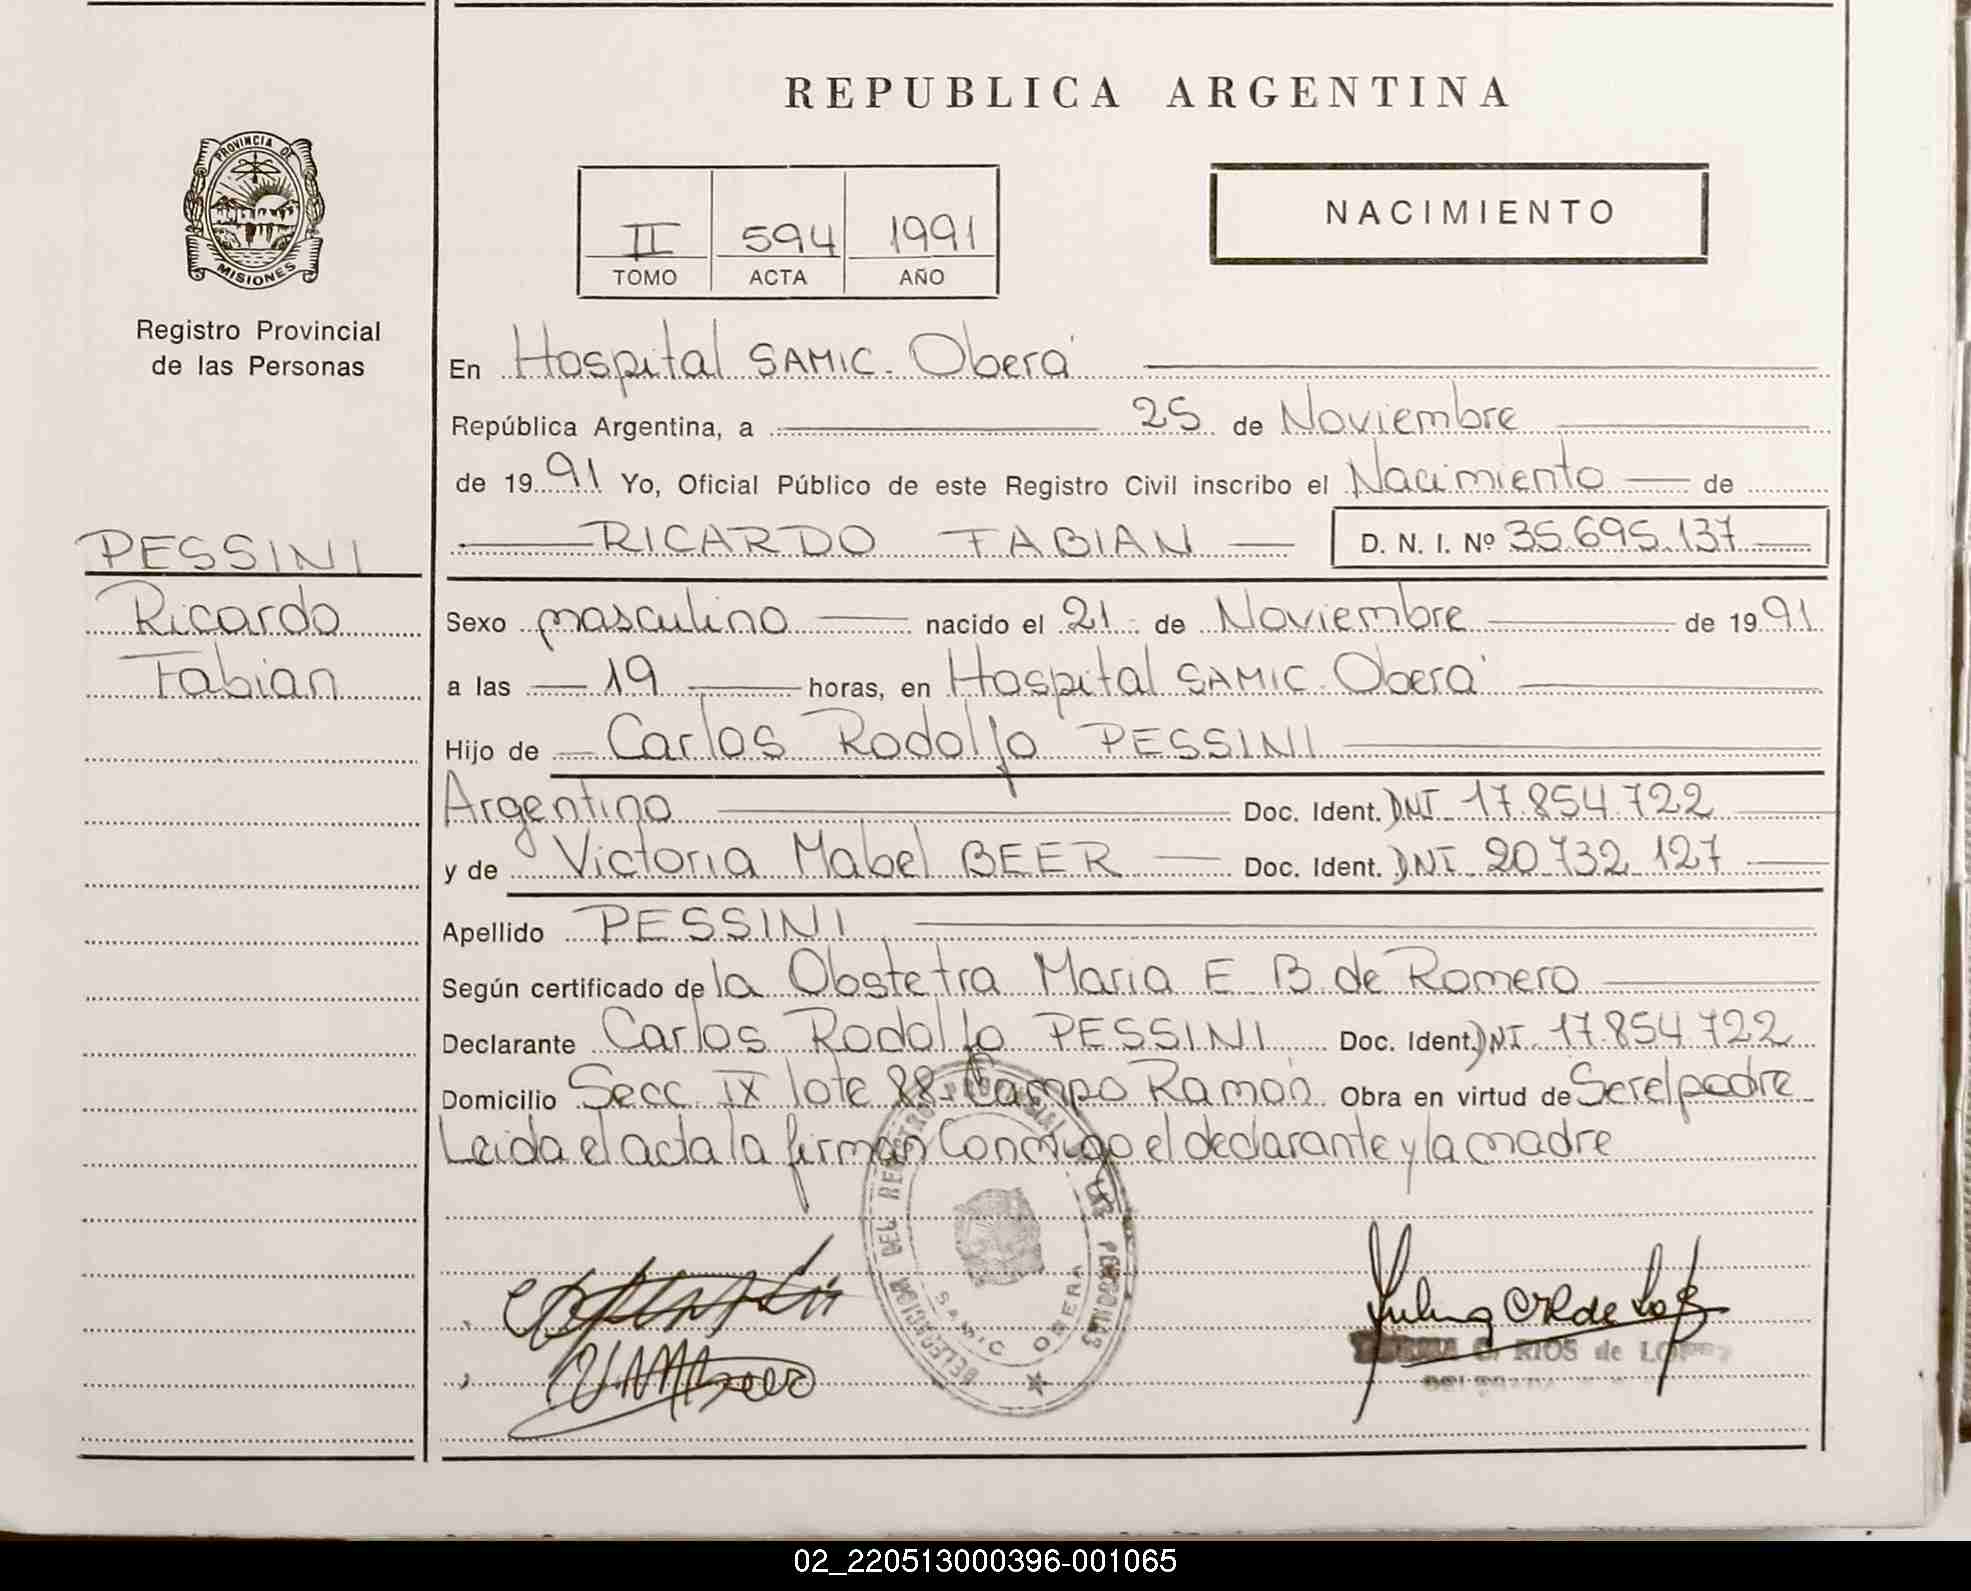 REPUBLICA ARGENTINA
PROVINCIA DE
MISIONES
Registro Provincial
de las Personas
II 594 1991
TOMO ACTA AÑO
NACIMIENTO
En Hospital SAMIC. Oberá
República Argentina, a 25 de Noviembre
de 1991 Yo, Oficial Público de este Registro Civil inscribo el Nacimiento de
RICARDO FABIAN D. N. I. Nº 35.695.137
PESSINI
Ricardo
Fabian
Sexo masculino nacido el 21 de Noviembre de 1991
a las 19 horas, en Hospital SAMIC. Oberá
Hijo de Carlos Rodolfo PESSINI
Argentino Doc. Ident. DNI 17.854.722
y de Victoria Mabel BEER Doc. Ident. DNI 20.732.127
Apellido PESSINI
Según certificado de la Obstetra Maria E B de Romero
Declarante Carlos Rodolfo PESSINI Doc. Ident. DNI 17.854.722
Domicilio Secc IX lote 88- Campo Ramón Obra en virtud de Ser el padre
Leida el acta la firman Conmigo el declarante y la madre
DELEGACION DEL REGISTRO PROVINCIAL DE LAS PERSONAS
SAMIC OBERA
RIOS de LOPEZ
02_220513000396-001065